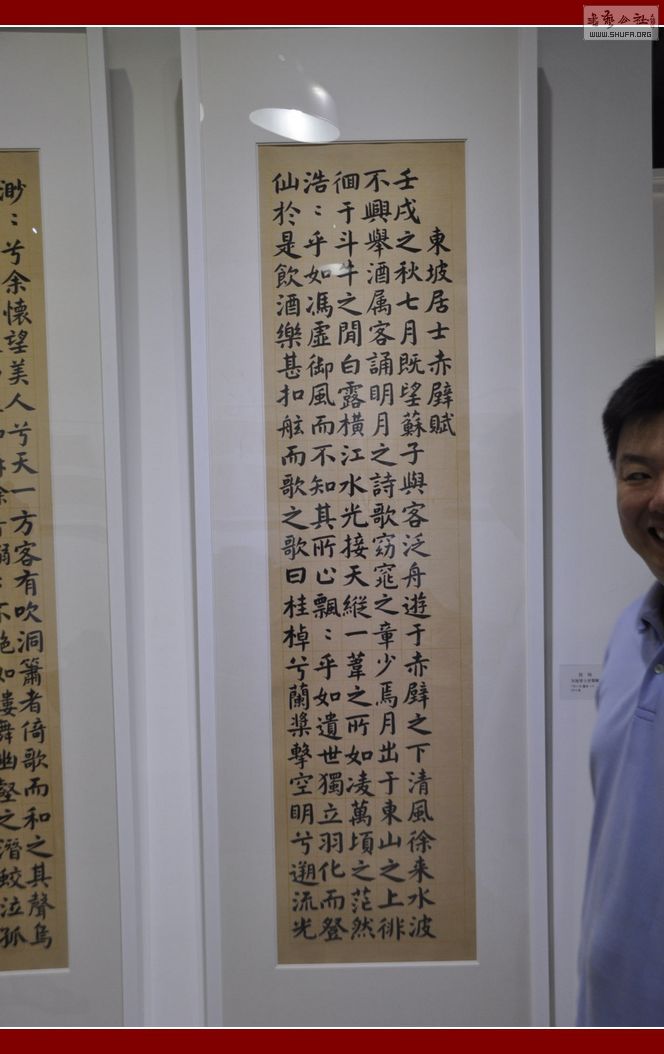 東坡居士赤壁賦
壬戌之秋七月既望蘇子與客泛舟遊于赤壁之下清風徐来水波
不興舉酒属客誦明月之詩歌窈窕之章少焉月出于東山之上徘
徊于斗牛之閒白露橫江水光接天縱一葦之所如凌萬頃之茫然
浩:乎如馮虛御風而不知其所止飄:乎如遺世獨立羽化而登
仙於是飲酒樂甚扣舷而歌之歌曰桂棹兮蘭槳擊空明兮遡流光
渺:兮余懷望美人兮天一方客有吹洞簫者倚歌而和之其聲烏
不絶如縷舞幽壑之潛蛟泣孤
WWW.SHUFA.ORG